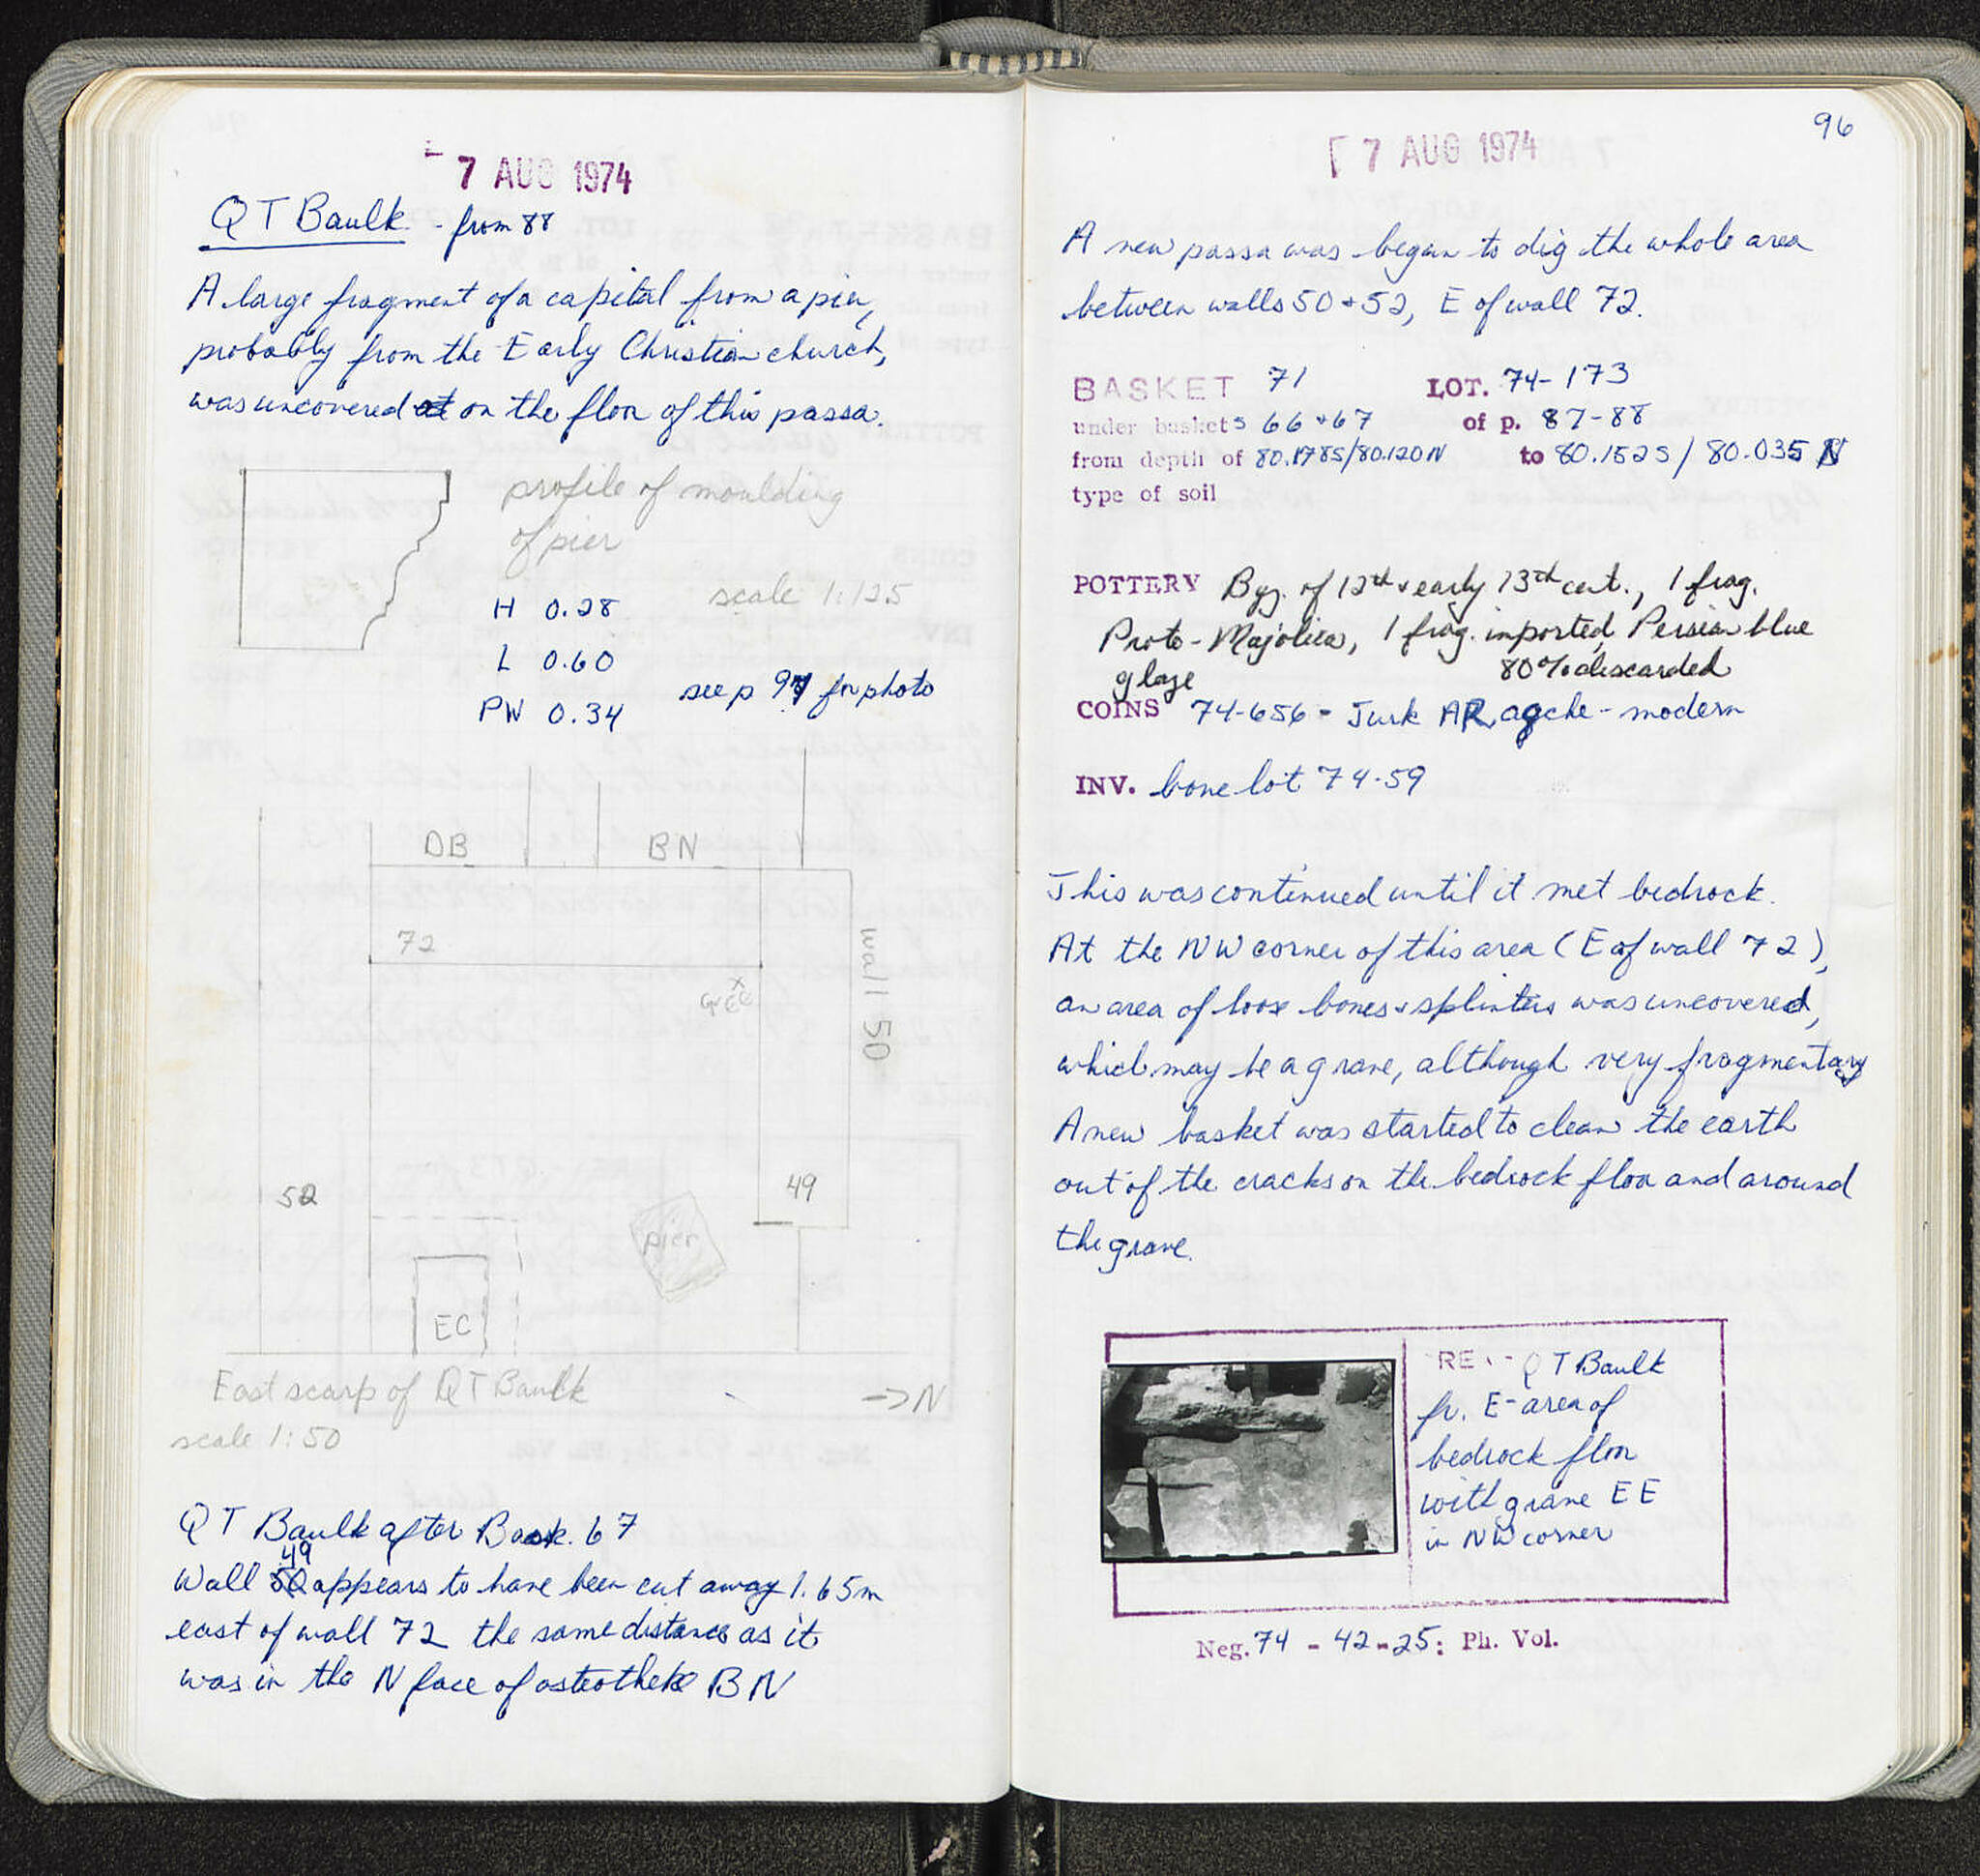 7 AUG 1974
QT Baulk - from 88
A large fragment of a capital from a pier,
probably from the Early Christian church,
was uncovered at on the floor of this passa.
profile of moulding
of pier
scale 1:125
H 0.28
L 0.60
PW 0.34
see p 97 for photo
DB
BN
72
x
Gr EE
wall 50
52
49
pier
EC
East scarp of QT Baulk
→N
scale 1:50
QT Baulk after Bask. 67
49
Wall 50 appears to have been cut away 1.65m
east of wall 72 the same distance as it
was in the N face of osteotheke BN
96
7 AUG 1974
A new passa was began to dig the whole area
between walls 50 + 52, E of wall 72.
BASKET 71 LOT. 74-173
under baskets 66 + 67 of p. 87-88
from depth of 80.178S/80.120N to 80.152S / 80.035 N
type of soil
POTTERY Byz. of 12th + early 13th cent., 1 frag.
Proto-Majolica, 1 frag. imported Persian blue
glaze 80% discarded
COINS 74-656 - Turk AR aqche - modern
INV. bone lot 74-59
This was continued until it met bedrock.
At the NW corner of this area (E of wall 72),
an area of loose bones + splinters was uncovered,
which may be a grave, although very fragmentary
A new basket was started to clean the earth
out of the cracks on the bedrock floor and around
the grave.
RE: - QT Baulk
fr. E - area of
bedrock floor
with grave EE
in NW corner
Neg. 74 - 42 - 25: Ph. Vol.